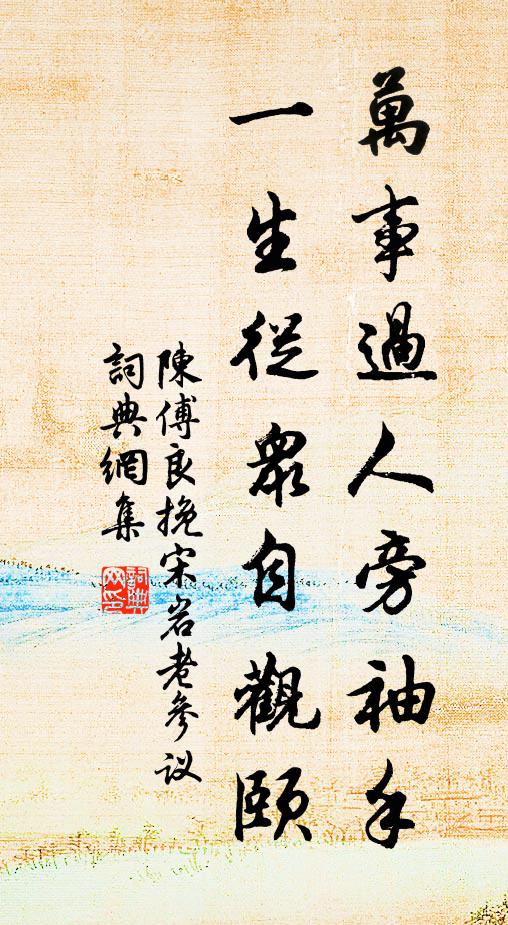 萬事過人旁袖手
一生從眾自觀頤
陳傅良挽宋岩老參议
詞典網集
詞典网印